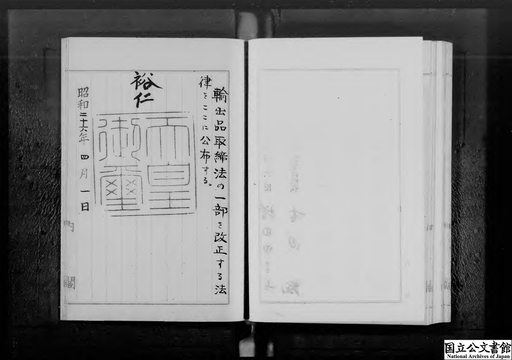 輸出品取締法の一部を改正する法
律をここに公布する。
裕仁
天皇
御璽
昭和二十六年四月一日
内閣
国立公文書館
National Archives of Japan